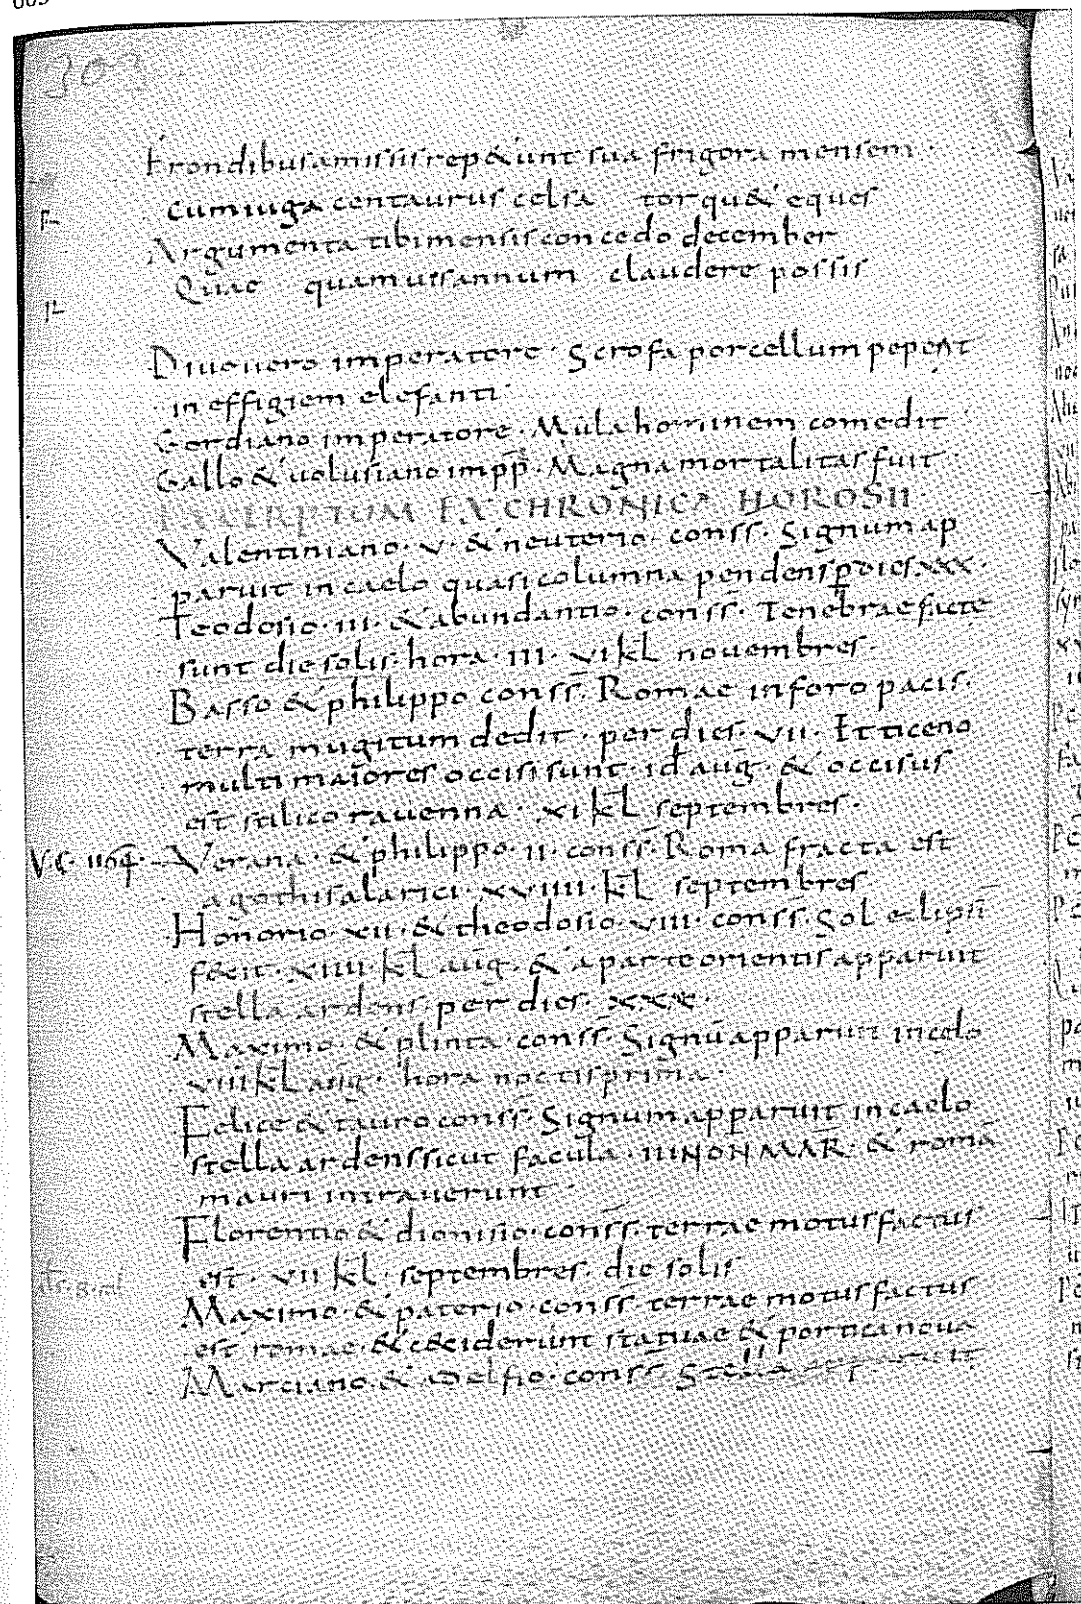 303
Frondibus amissis rep&unt sua frigora mensem ·
cum iuga centaurus celsa torqu& eques
Argumenta tibi mensis concedo december
Quae quamuis annum claudere possis
Diuo uero imperatore · Scrofa porcellum peperit
in effigiem elefanti ·
Gordiano imperatore · Mula hominem comedit ·
Gallo & uolusiano impp̄ · Magna mortalitas fuit
EXCERPTUM EX CHRONICA HOROSII
Valentiniano · v · & neuterio · conss̄ · Signum ap
paruit in caelo quasi columna pendens ꝑ dies · xxx ·
Teodosio · iii · & abundantio · conss̄ · Tenebrae facte
sunt die solis · hora · iii · vi kl̄ nouembres ·
Basso & philippo conss̄ · Romae in foro pacis ·
terra mugitum dedit · per dies · vii · Et ticeno
multi maiores occisi sunt · id̄ aug̅ · & occisus
est stilico rauenna · xi kl̄ septembres ·
V.C. 1164 · Verana · & philippo · ii · conss̄ · Roma fracta est
a gothis alarici · xviiii · kl̄ septembres
Honorio · xii · & theodosio · viii · conss̄ · Sol eclipsī
fecit · xiiii · kl̄ aug̅ · & a parte orientis apparuit
stella ardens · per dies · xxx ·
Maximo · & plinta · conss̄ · Signū apparuit in cęlo
viii kl̄ aug̅ · hora noctis prima ·
Felice & tauro conss̄ · Signum apparuit in caelo
stella ardens sicut facula · iii NON MAR̄ · & romā
mauri intrauerunt ·
Florentio & dionisio · conss̄ · terrae motus factus
est · vii kl̄ · septembres · die solis
Maximo · & paterio · conss̄ · terrae motus factus
est romae · & ceciderunt statuae & portica noua
Marciano · & adelfio · conss̄ · Stella apparuit